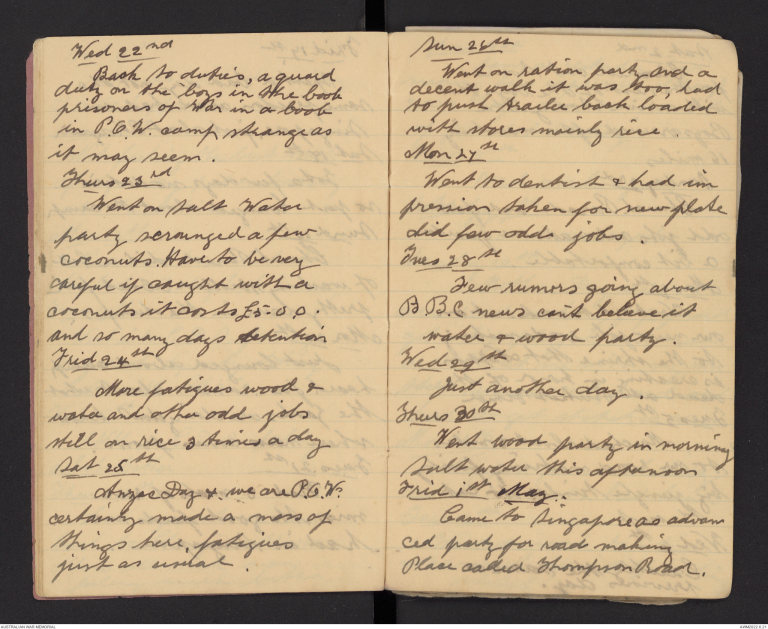 Wed 22nd
Back to duties, a guard
duty on the boys in the boob
prisoners of War in a boob
in P.O.W. camp strange as
it may seem.
Thurs 23rd
Went on Salt Water
party scrounged a few
coconuts. Have to be very
careful if caught with a
coconuts it costs £5-0.0.
and so many days detention
Frid 24th
More fatigues wood &
water and other odd jobs
still on rice 3 times a day
Sat 25th
Anzac Day & we are P.O.W.
certainly made a mess of
things here, fatigues
just as usual.
Sun 26th
Went on ration party and a
decent walk it was too, had
to push trailer back loaded
with stores mainly rice.
Mon 27st
Went to dentist & had im
pression taken for new plate
did few odds jobs.
Tues 28st
Few rumors going about
B B.C news cant believe it
water & wood party.
Wed 29th
Just another day.
Thurs 30st
Went wood party in morning
Salt water this afternoon
Frid 1st May.
Came to Singapore as advan
ced party for road making
Place called Thompson Road.
AUSTRALIAN WAR MEMORIAL